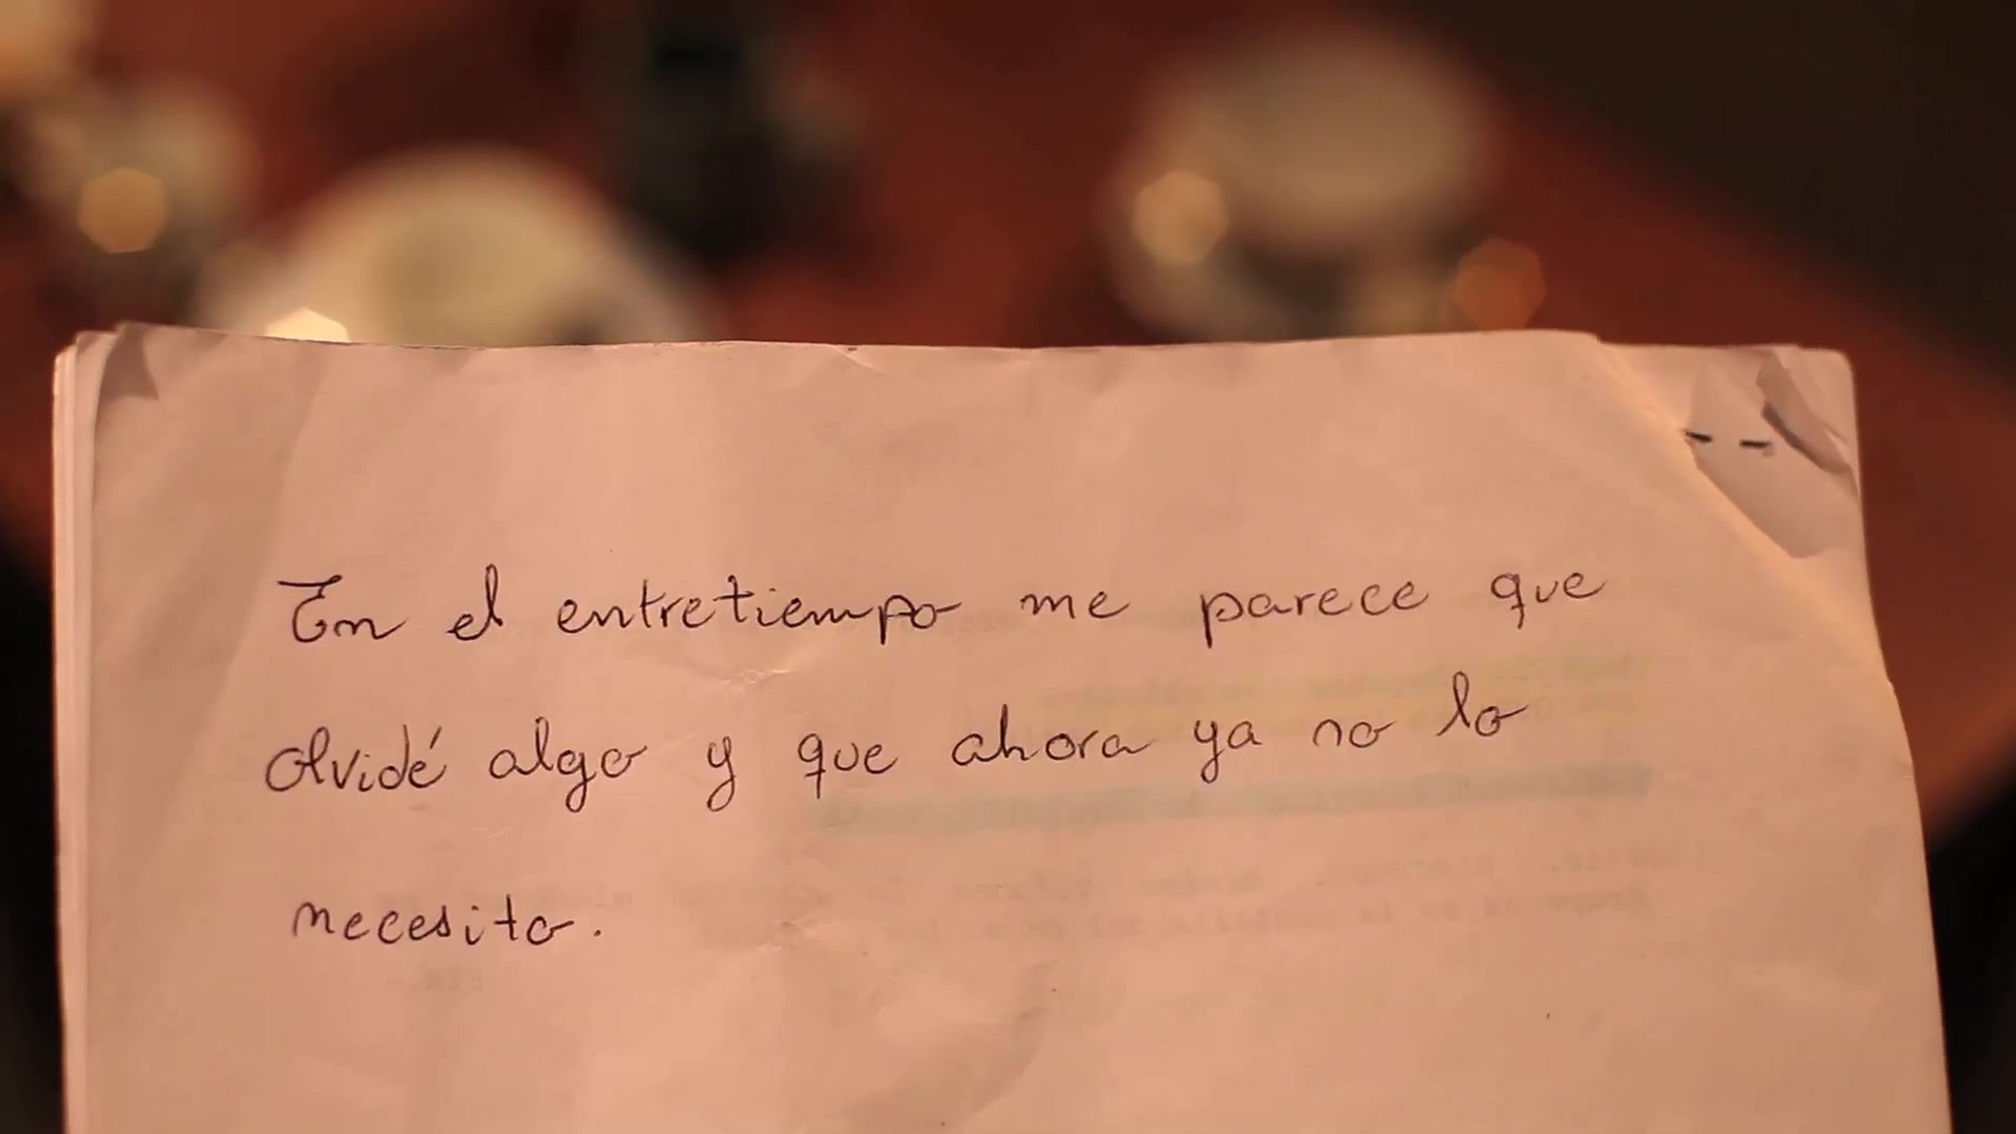 En el entretiempo me parece que
olvidé algo y que ahora ya no lo
necesito.